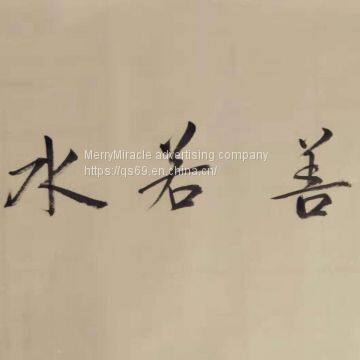 善若水
MerryMiracle advertising company
https://qs69.en.china.cn/